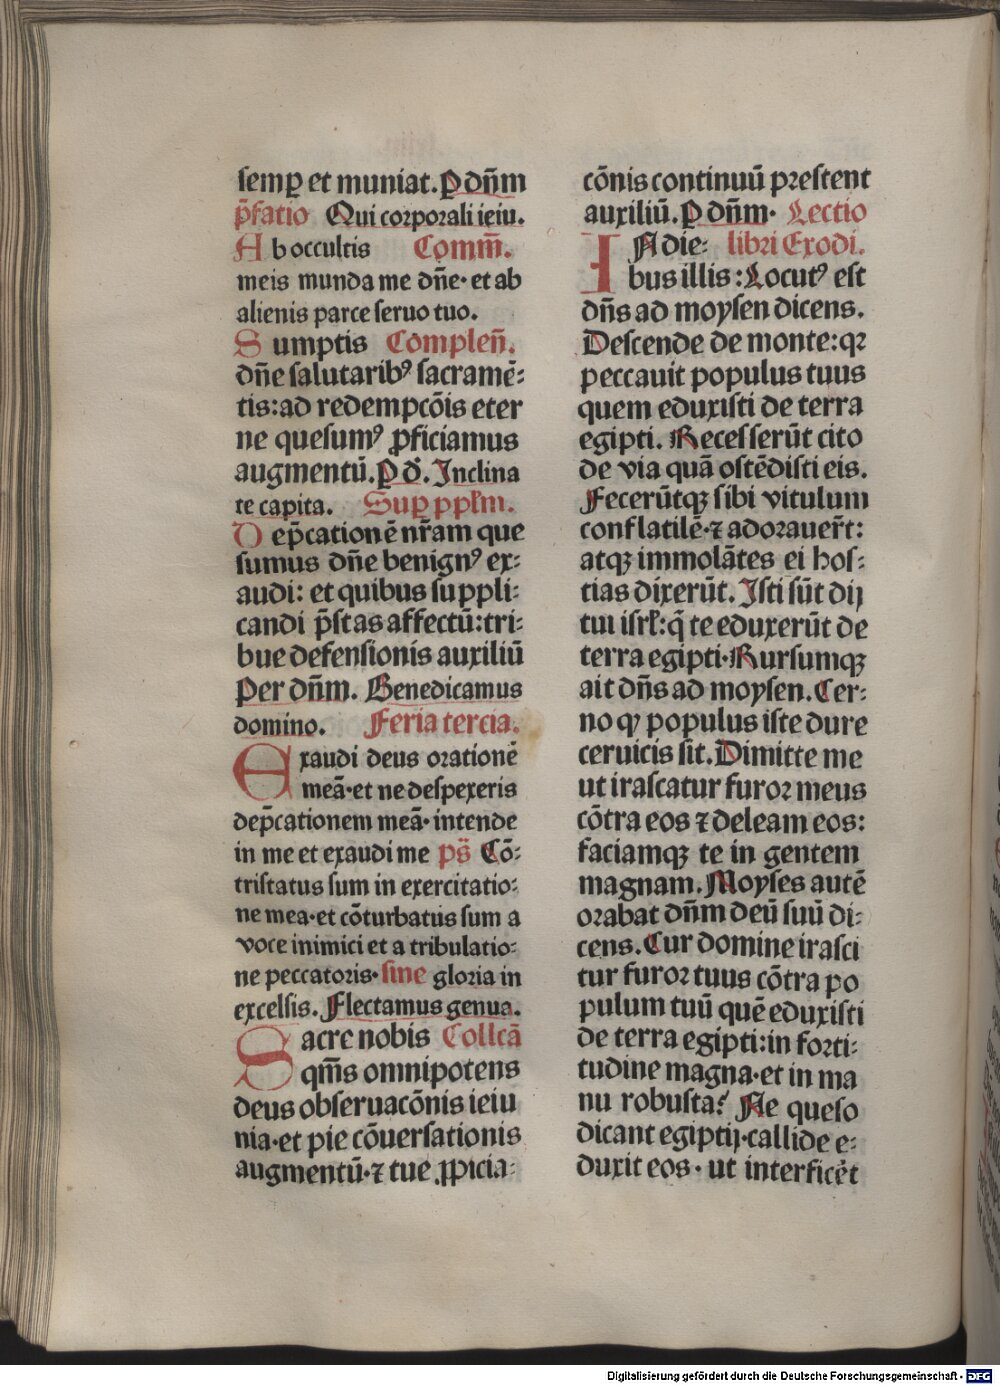 semꝑ et muniat. P dn̄m
p̄fatio Qui corporali ieiu.
Ab occultis Com̄m.
meis munda me dn̄e· et ab
alienis parce seruo tuo.
Sumptis Complen̄.
dn̄e salutaribꝰ sacramē-
tis: ad redempcōis eter
ne quesumꝰ ꝓficiamus
augmentū. P d. Inclina
te capita. Suꝑ ppl̄m.
Dep̄cationē nr̄am que
sumus dn̄e benignꝰ ex-
audi: et quibus suppli-
candi p̄stas affectū: tri-
bue defensionis auxiliū
Per dn̄m. Benedicamus
domino. Feria tercia.
Exaudi deus orationē
meā· et ne despexeris
dep̄cationem meā· intende
in me et exaudi me ps̄ Cō-
tristatus sum in exercitatio-
ne mea· et cōturbatus sum a
voce inimici et a tribulatio-
ne peccatoris· sine gloria in
excelsis. Flectamus genua.
Sacre nobis Collcā
qm̄s omnipotens
deus obseruacōnis ieiu
nia· et pie cōuersationis
augmentū· ⁊ tue ꝓpicia-
cōnis continuū prestent
auxiliū. P dn̄m· Lectio
IN die- libri Exodi.
bus illis: Locutꝰ est
dn̄s ad moysen dicens.
Descende de monte: qꝛ
peccauit populus tuus
quem eduxisti de terra
egipti. Recesserūt cito
de via quā ostēdisti eis.
Fecerūtqꝫ sibi vitulum
conflatilē· ⁊ adorauer̄t:
atqꝫ immolātes ei hos-
tias dixerūt. Isti sūt dij
tui isrl̄: q̄ te eduxerūt de
terra egipti· Rursumqꝫ
ait dn̄s ad moysen. Cer-
no ꝙ populus iste dure
ceruicis sit. Dimitte me
ut irascatur furor meus
cōtra eos ⁊ deleam eos:
faciamqꝫ te in gentem
magnam. Moyses autē
orabat dn̄m deū suū di-
cens. Cur domine irasci
tur furor tuus cōtra po
pulum tuū quē eduxisti
de terra egipti: in forti-
tudine magna· et in ma
nu robusta? Ne queso
dicant egiptij· callide e-
duxit eos· ut interficēt
Digitalisierung gefördert durch die Deutsche Forschungsgemeinschaft - DFG